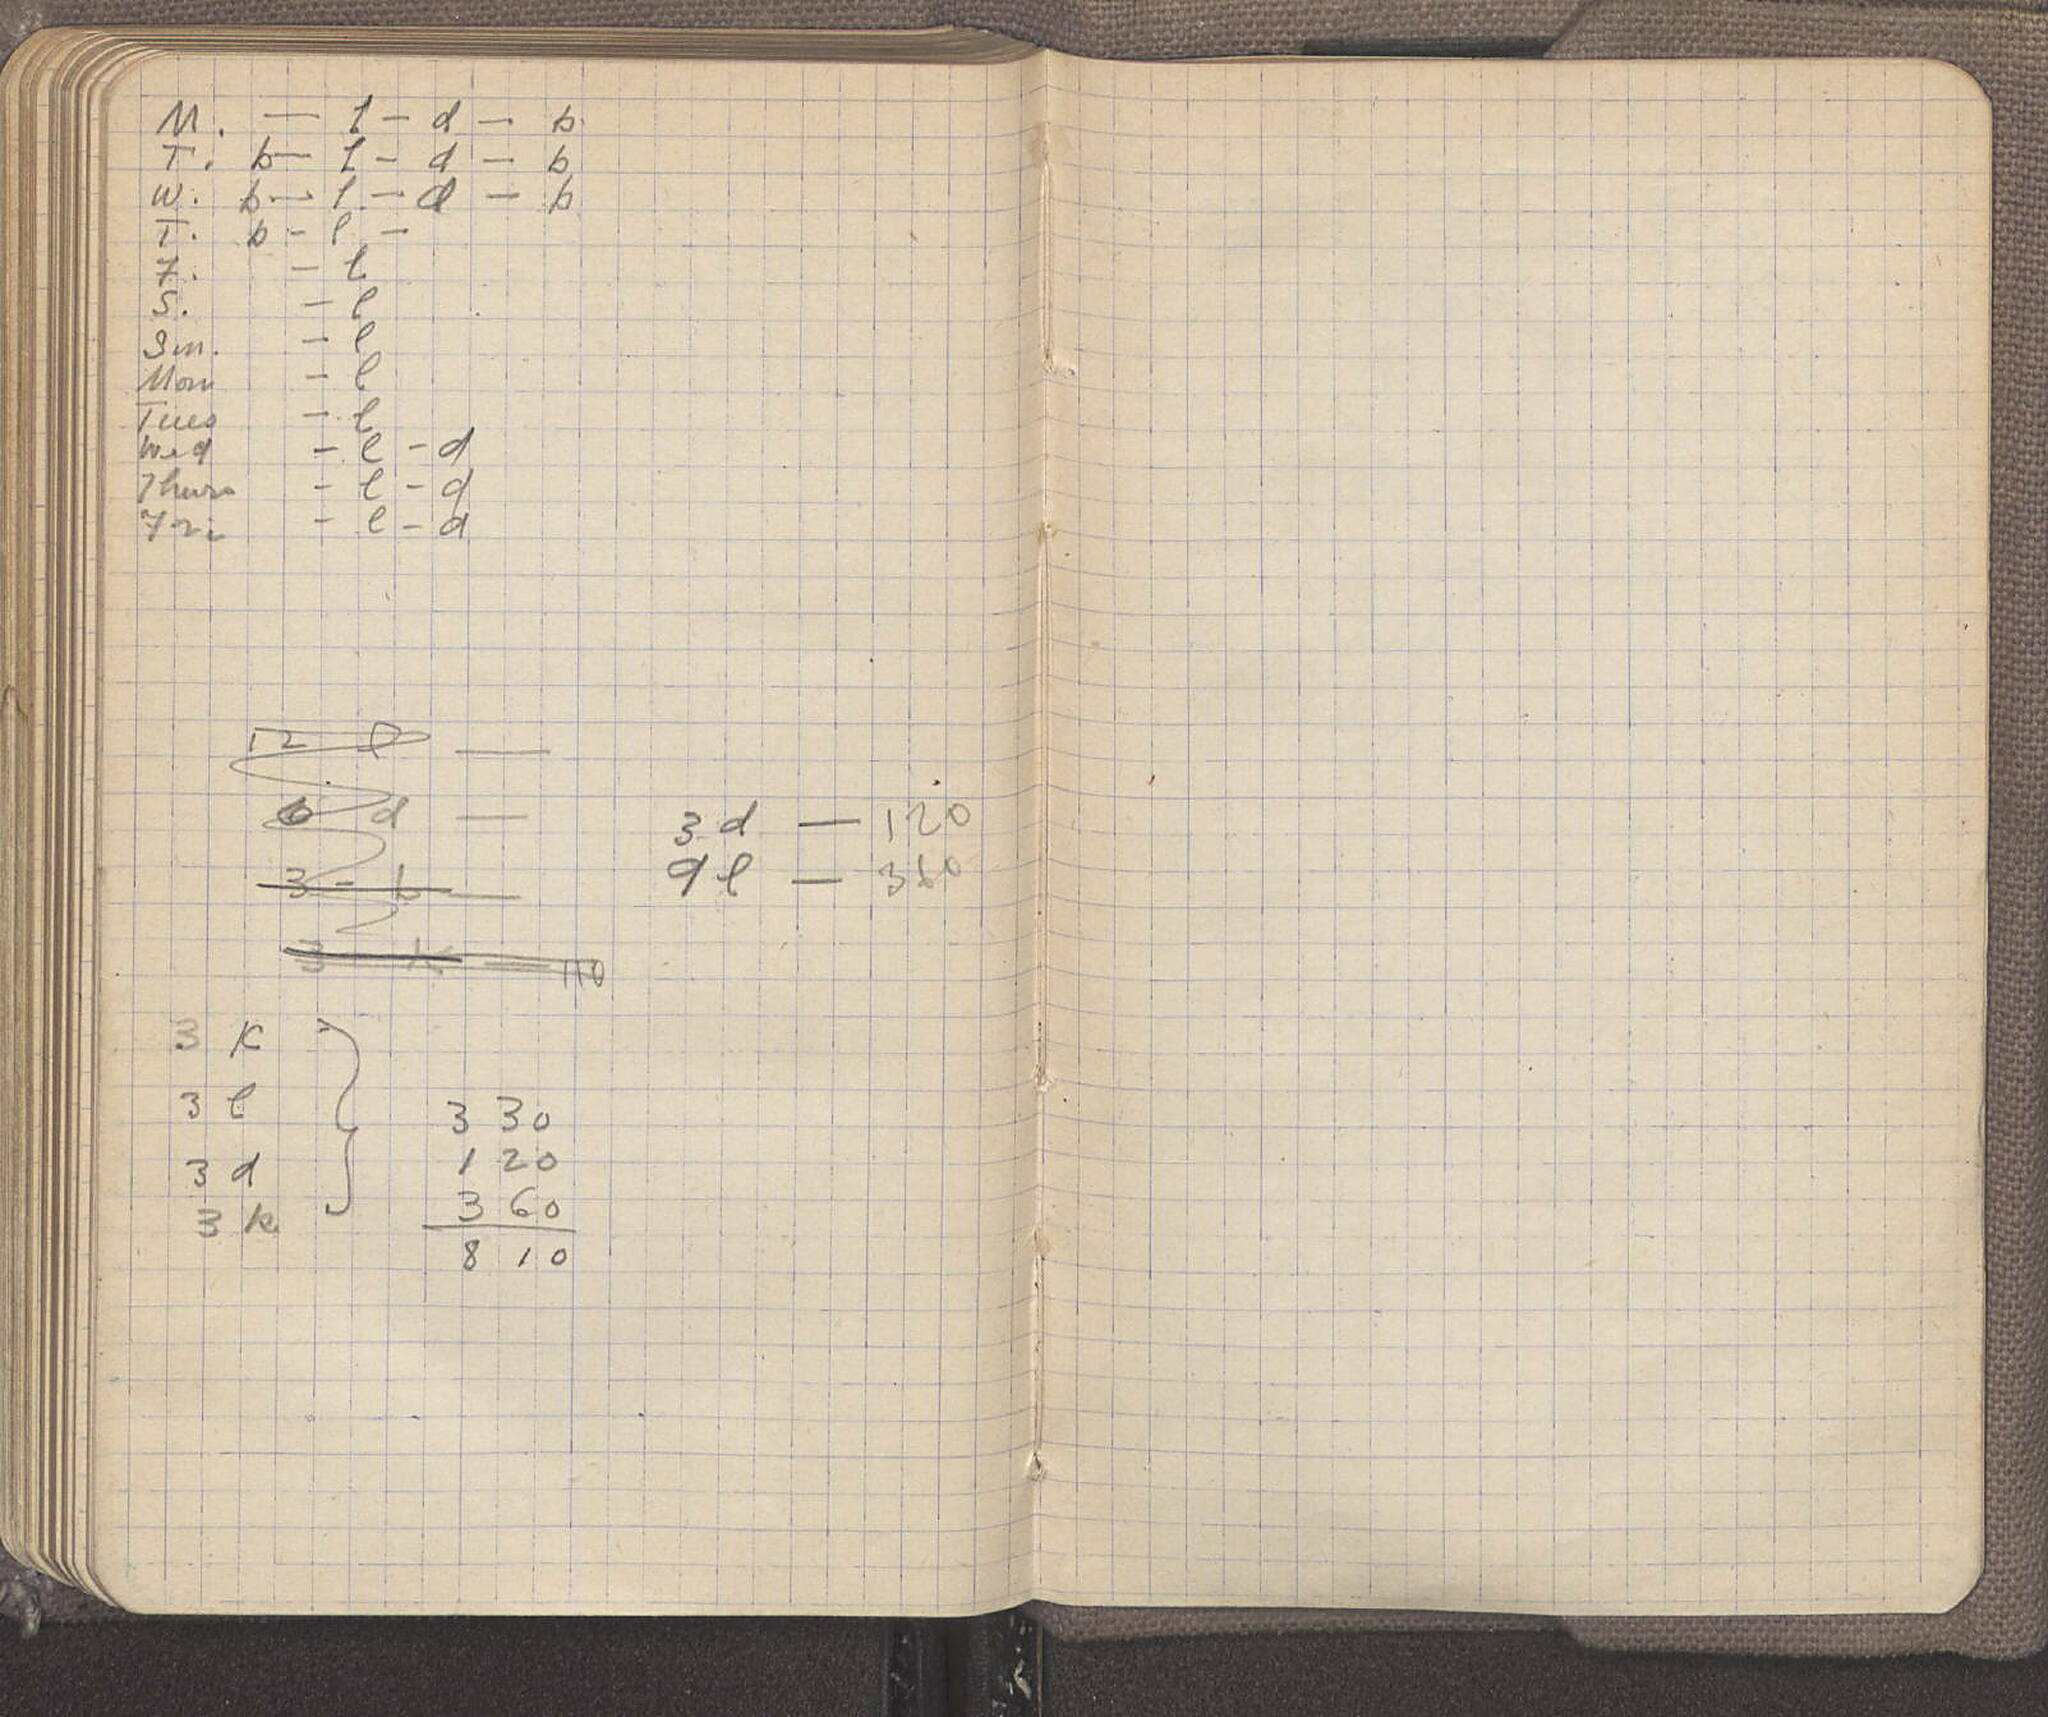 M. — l – d – b.
T. b – l – d – b
W. b – l – d – b
T. b – l –
F. – l
S. – l
Sun. – l
Mon – l
Tues – l
Wed – l – d
Thurs – l – d
Fri – l – d
12 l —
6 d —
3 – b —
3 – k = 110
3 d — 120
9 l — 360
3 k
3 l
3 d
3 k
330
120
360
810